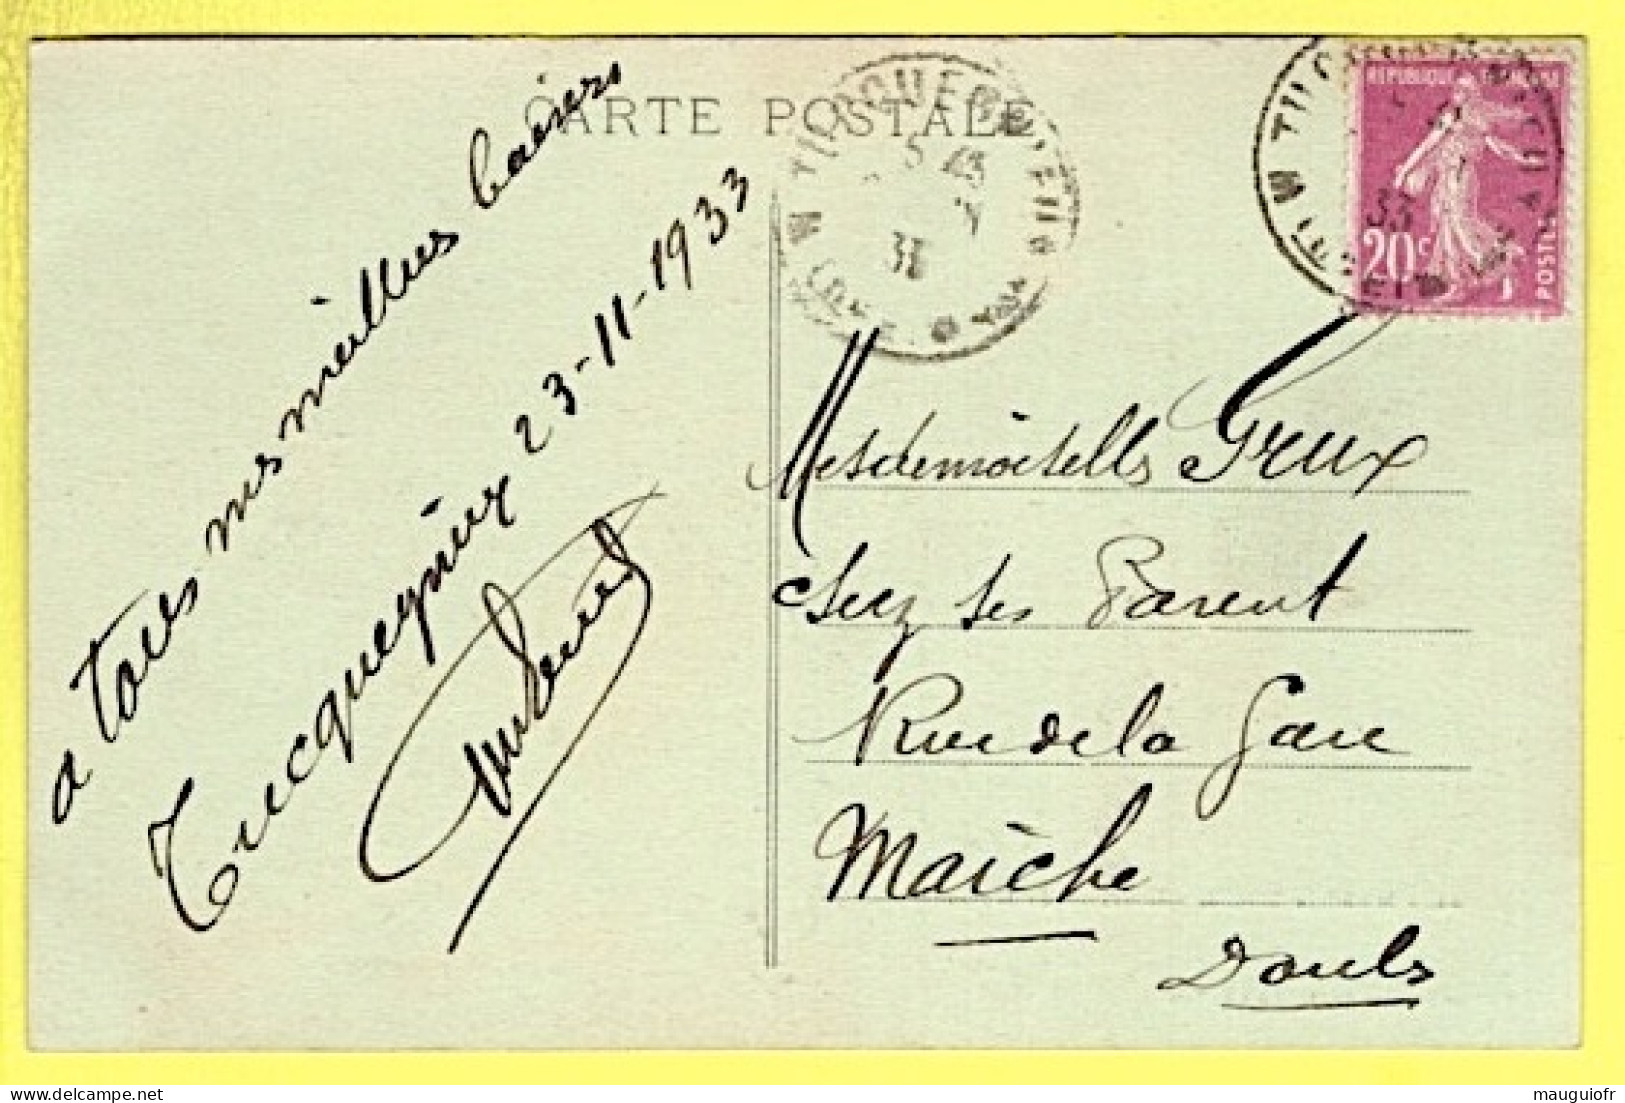 CARTE POSTALE
a toutes mes meilleurs baisers
Tucquegnieux 23-11-1933
TUCQUEGNIEUX
5 43
33
REPUBLIQUE FRANÇAISE
20c
POSTES
33
Mesdemoiselles Grux
chez ses Parent
Rue de la Gare
Maîche
Doubs
mauguiofr